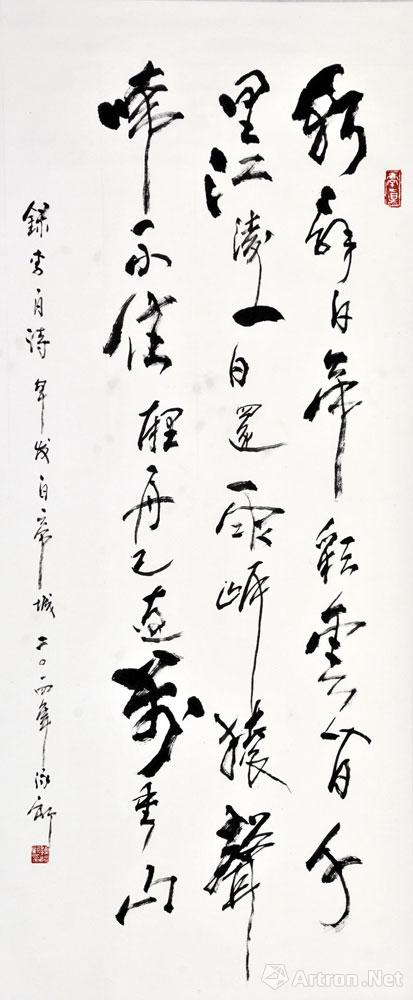 朝辞白帝彩雲間千
里江陵一日還两岸猿聲
啼不住輕舟已過萬重山
錄李白詩早发白帝城二〇一四年
Artron.Net